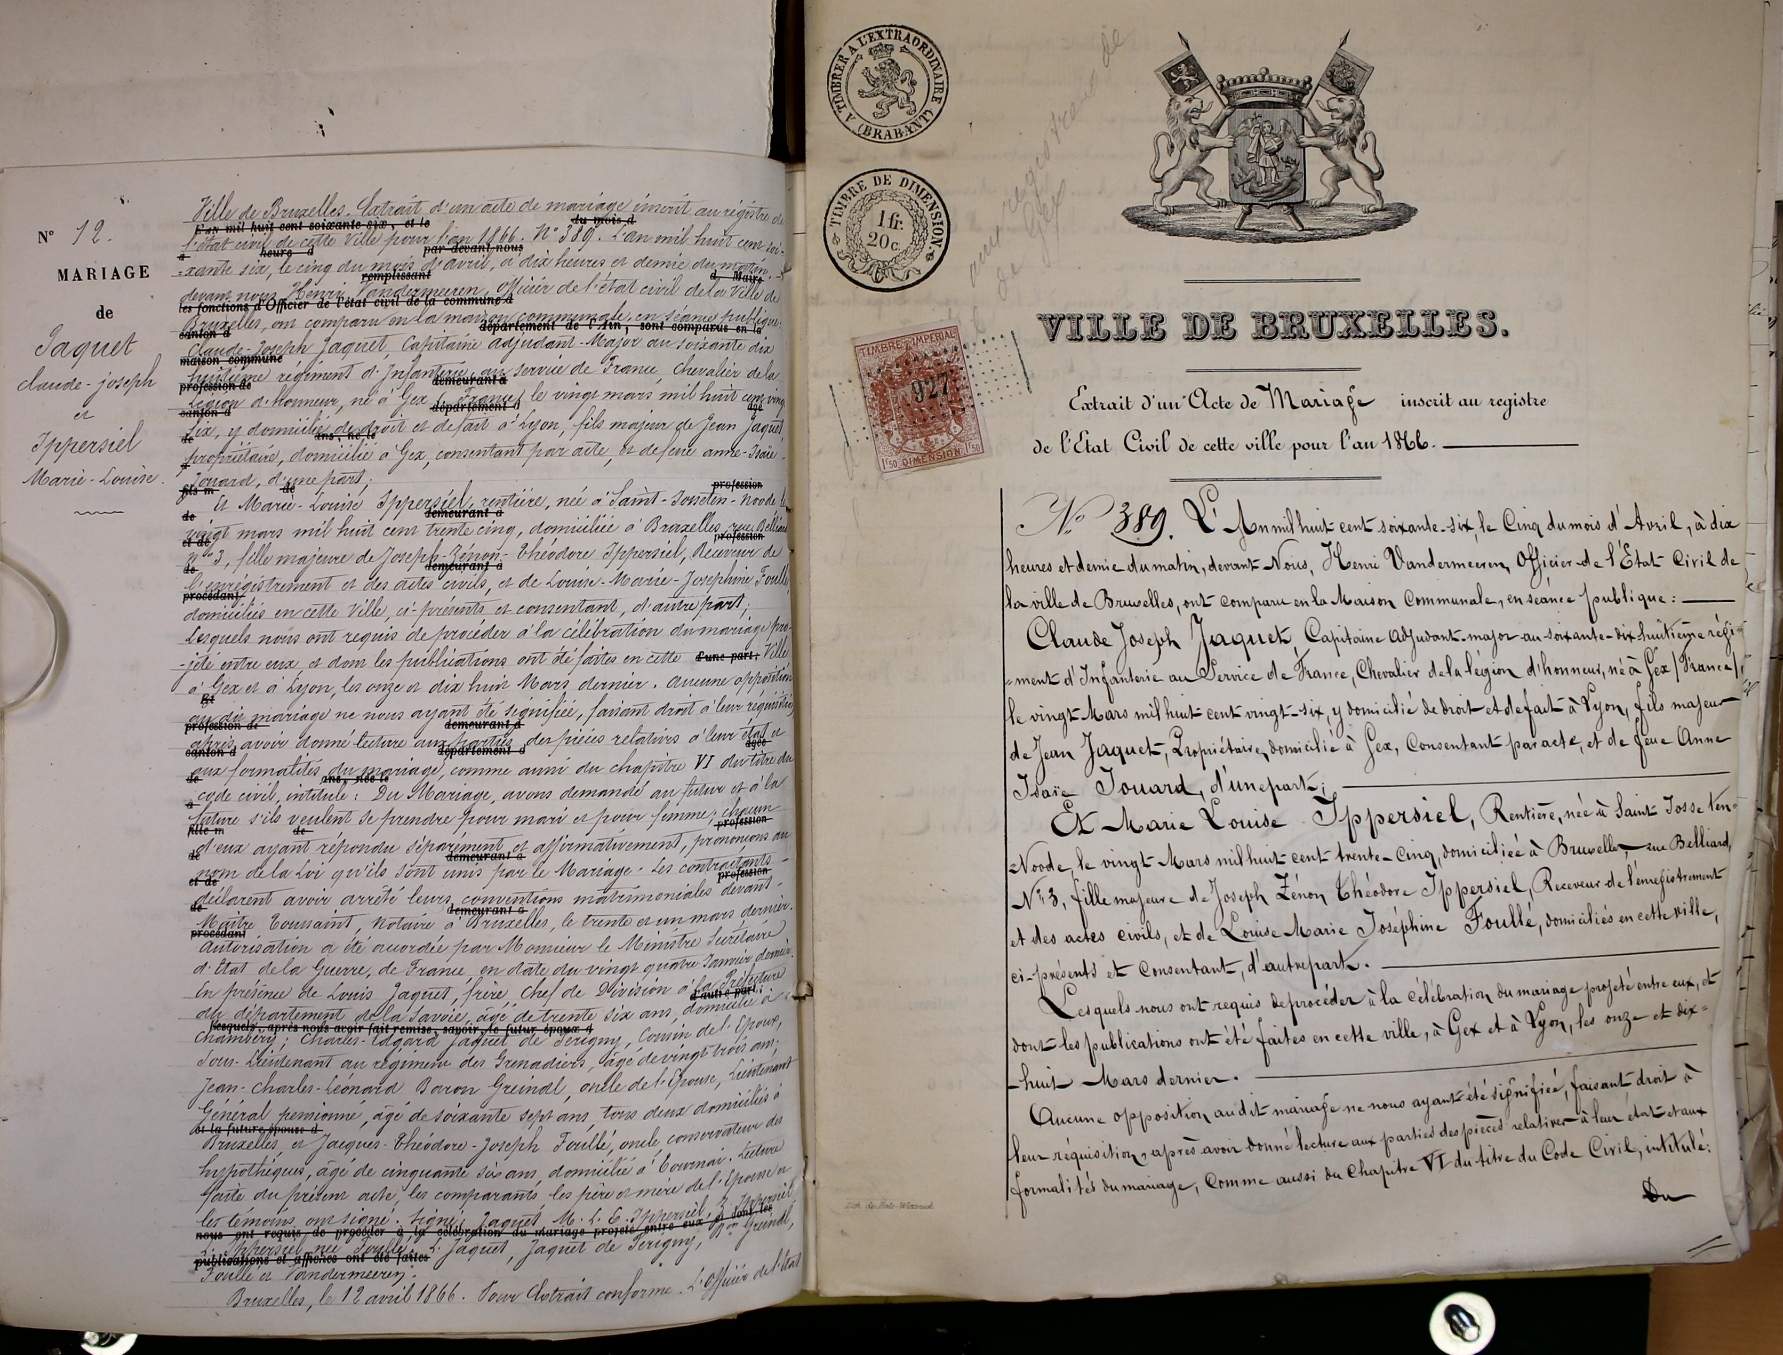 N° 12.
MARIAGE
de
Jaquet
claude-joseph
et
Ippersiel
Marie-Louise.
Ville de Bruxelles. Extrait d'un acte de mariage inscrit au régistre de
L'an mil huit cent soixante six, et le du mois d
l'état civil de cette Ville pour l'an 1866. N° 389. L'an mil huit cent soi-
à heure d par devant nous
-xante six, le cinq du mois d'avril, à dix heures et demie du matin,
remplissant d Maire
devant nous Henri Vandermeeren, officier de l'état civil de la Ville de
les fonctions d'Officier de l'état civil de la commune d
Bruxelles, ont comparu en la maison communale, en séance publique:
canton d département de l'Ain, sont comparus en la
Claude-Joseph Jaquet, Capitaine adjudant-Major au soixante dix
maison commune
huitième régiment d'Infanterie, au service de France, Chevalier de la
profession de demeurant à
Légion d'honneur, né à Gex (France) le vingt mars mil huit cent vingt
canton d département d âgé
six, y domicilié de droit et de fait à Lyon, fils majeur de Jean Jaquet
de ans, né le
propriétaire, domicilié à Gex, consentant par acte, et de feue anne-Isaïe
Jouard, d'une part;
fils m de profession
Et Marie-Louise Ippersiel, rentière, née à Saint-Josseten-Noode le
de demeurant à
vingt mars mil huit cent trente cinq, domiciliée à Bruxelles, rue Belliard
et de profession
N° 3, fille majeure de Joseph-Zénon-Théodore Ippersiel, Receveur de
de demeurant à
l'enregistrement et des actes civils, et de Louise-Marie-Josephine Foullé
procédant
domiciliés en cette Ville, ci-présents et consentant, d'autre part;
Lesquels nous ont requis de procéder à la célébration du mariage pro-
-jeté entre eux et dont les publications ont été faites en cette d'une part. Ville
à Gex et à Lyon, les onze et dix huit Mars dernier. Aucune opposition
Et
au dit mariage ne nous ayant été signifiée, faisant droit à leur réquisition
profession de demeurant à
après avoir donné lecture aux parties des pièces relatives à leur état et
canton d département d âgée
aux formalités du mariage, comme aussi du chapitre VI du titre du
de ans, née le
code civil, intitulé: Du Mariage, avons demandé au futur et à la
à
future s'ils veulent se prendre pour mari et pour femme; chacun
fille m de profession
d'eux ayant répondu séparément et affirmativement, prononçons au
de demeurant à
nom de la Loi qu'ils sont unis par le Mariage. Les contractants
et de profession
déclarent avoir arrêté leurs conventions matrimoniales devant
de demeurant à
Maître Toussaint, Notaire à Bruxelles, le trente et un mars dernier.
procédant
Autorisation a été accordée par Monsieur le Ministre Secrétaire
d'Etat de la Guerre, de France, en date du vingt quatre Janvier dernier.
En présence de Louis Jaquet, frère, Chef de Division à la Préfecture
d'autre part.
du département de la Savoie, âgé de trente six ans, domicilié à
Lesquels, après nous avoir fait remise, savoir, le futur époux d
Chambéry; Charles-Edgard Jaquet de Perigny, Cousin de l'Epoux,
Sous-Lieutenant au régiment des Grenadiers, âgé de vingt trois ans;
Jean-Charles-Léonard Baron Greindl, oncle de l'Epouse, Lieutenant
Général pensionné, âgé de soixante sept ans, tous deux domiciliés à
et la future épouse d
Bruxelles, et Jacques-Théodore-Joseph Foullé, oncle conservateur des
hypothèques, âgé de cinquante six ans, domicilié à Tournai. Lecture
faite du présent acte, les comparants, les père et mère de l'Epouse et
les témoins ont signé. Signé: Jaquet, M. L. E. Ippersiel, Z. Ippersiel
nous ont requis de procéder à la célébration du mariage projeté entre eux et dont les
L. Ippersiel née Foullé, L. Jaquet, Jaquet de Perigny, Bon Greindl,
publications et affiches ont été faites
Foullé et Vandermeeren.
Bruxelles, le 12 avril 1866. Pour Extrait conforme. L'officier de l'état
A TIMBRER A L'EXTRAORDINAIRE (BRABANT)
TIMBRE DE DIMENSION.
1 fr.
20 c.
aux registres de
de Gex
TIMBRE IMPERIAL
927
1f50 DIMENSION 1f50
VILLE DE BRUXELLES.
Extrait d'un Acte de Mariage inscrit au registre
de l'Etat Civil de cette ville pour l'an 1866.
N° 389. L'An mil huit cent soixante-six, le Cinq du mois d'Avril, à dix
heures et demie du matin, devant Nous, Henri Vandermeeren, Officier de l'Etat Civil de
la ville de Bruxelles, ont comparu en la Maison Communale, en séance publique:
Claude Joseph Jaquet, Capitaine adjudant-major au soixante-dix huitième régi=
=ment d'Infanterie au Service de France, Chevalier de la légion d'honneur, né à Gex (France)
le vingt Mars mil huit cent vingt-six, y domicilié de droit et de fait à Lyon, fils majeur
de Jean Jaquet, Propriétaire, domicilié à Gex, Consentant par acte, et de feue Anne
Isaïe Jouard, d'une part;
Et Marie Louise Ippersiel, Rentière, née à Saint Josse ten=
=Noode, le vingt Mars mil huit cent trente-Cinq, domiciliée à Bruxelles, rue Belliard,
N° 3, fille majeure de Joseph Zénon Théodore Ippersiel, Receveur de l'enregistrement
et des actes civils, et de Louise Marie Joséphine Foullé, domiciliés en cette ville,
ci-présents et Consentant, d'autre part.
Lesquels nous ont requis de procéder à la célébration du mariage projeté entre eux, et
dont les publications ont été faites en cette ville, à Gex et à Lyon, les onze et dix=
-huit Mars dernier.
Aucune opposition audit mariage ne nous ayant été signifiée, faisant droit à
leur réquisition, après avoir donné lecture aux parties des pièces relatives à leur état et aux
formalités du mariage, Comme aussi du Chapitre VI du titre du Code Civil, intitulé:
Du